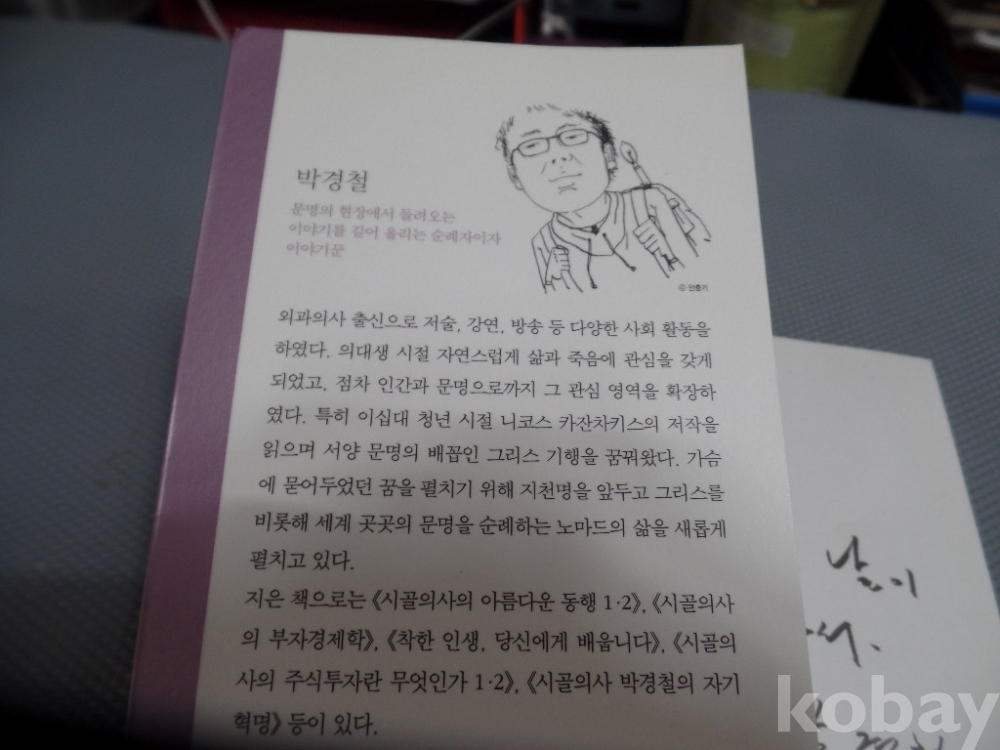 박경철
문명의 현장에서 들려오는
이야기를 길어 올리는 순례자이자
이야기꾼
ⓒ안중기
외과의사 출신으로 저술, 강연, 방송 등 다양한 사회 활동을
하였다. 의대생 시절 자연스럽게 삶과 죽음에 관심을 갖게
되었고, 점차 인간과 문명으로까지 그 관심 영역을 확장하
였다. 특히 이십대 청년 시절 니코스 카잔차키스의 저작을
읽으며 서양 문명의 배꼽인 그리스 기행을 꿈꿔왔다. 가슴
에 묻어두었던 꿈을 펼치기 위해 지천명을 앞두고 그리스를
비롯해 세계 곳곳의 문명을 순례하는 노마드의 삶을 새롭게
펼치고 있다.
지은 책으로는 《시골의사의 아름다운 동행 1·2》, 《시골의사
의 부자경제학》, 《착한 인생, 당신에게 배웁니다》, 《시골의
사의 주식투자란 무엇인가 1·2》, 《시골의사 박경철의 자기
혁명》 등이 있다.
날이
kobay